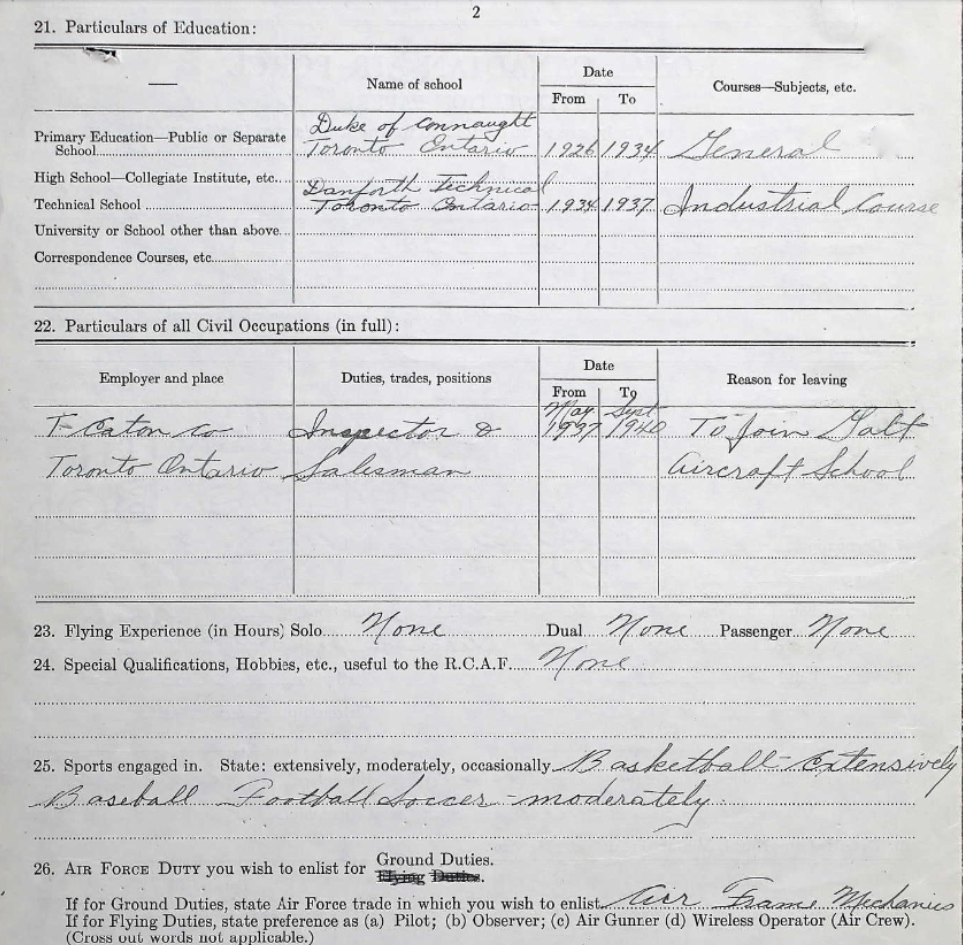 2
21. Particulars of Education:
— Name of school Date Courses—Subjects, etc.
From To
Duke of Connaught
Primary Education—Public or Separate
School Toronto Ontario 1926 1934 General
High School—Collegiate Institute, etc.
Danforth Technical
Technical School Toronto Ontario 1934 1937 Industrial Course
University or School other than above
Correspondence Courses, etc
22. Particulars of all Civil Occupations (in full):
Employer and place Duties, trades, positions Date Reason for leaving
From To
May Sept
T Eaton Co Inspector & 1937 1940 To join Galt
Toronto Ontario Salesman Aircraft School
23. Flying Experience (in Hours) Solo None Dual None Passenger None
24. Special Qualifications, Hobbies, etc., useful to the R.C.A.F. None
25. Sports engaged in. State: extensively, moderately, occasionally Basketball - Extensively
Baseball Football Soccer - moderately
26. AIR FORCE DUTY you wish to enlist for Ground Duties.
Flying Duties.
If for Ground Duties, state Air Force trade in which you wish to enlist Air Frame Mechanics
If for Flying Duties, state preference as (a) Pilot; (b) Observer; (c) Air Gunner (d) Wireless Operator (Air Crew).
(Cross out words not applicable.)